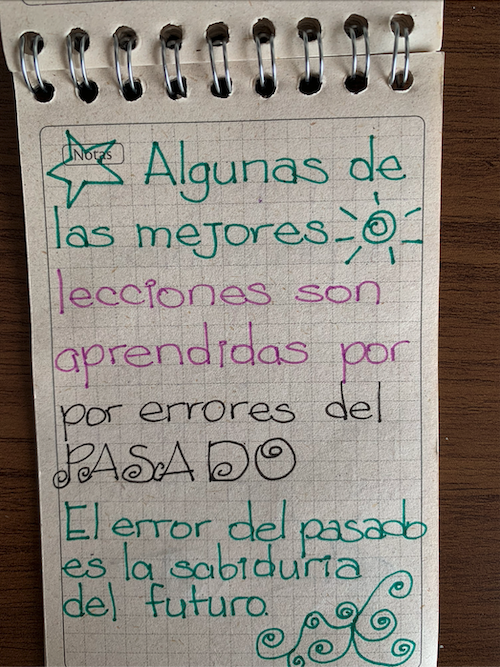 Notas
Algunas de
las mejores
lecciones son
aprendidas por
por errores del
PASADO
El error del pasado
es la sabiduria
del futuro.